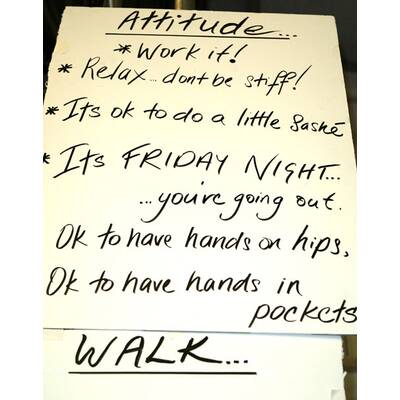 Attitude...
* Work it!
* Relax... dont be stiff!
* Its ok to do a little Sashé
* Its FRIDAY NIGHT...
...you're going out.
Ok to have hands on hips,
Ok to have hands in
pockets
WALK...